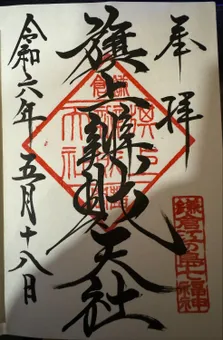 奉拝
鎌倉江の島七福神
旗上辨財天社
令和六年五月十八日